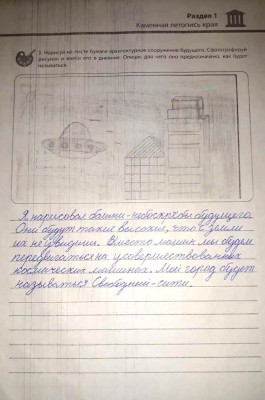 Раздел 1
Каменная летопись края
3. Нарисуй на листе бумаги архитектурное сооружение будущего. Сфотографируй
рисунок и вклей его в дневник. Опиши, для чего оно предназначено, как будет
называться.
Я нарисовал башни-небоскрёбы будущего.
Они будут такие высокие, что с земли
их не увидишь. Вместо машин мы будем
передвигаться на усовершенствованных
космических машинах. Мой город будет
называться Свободный-сити.